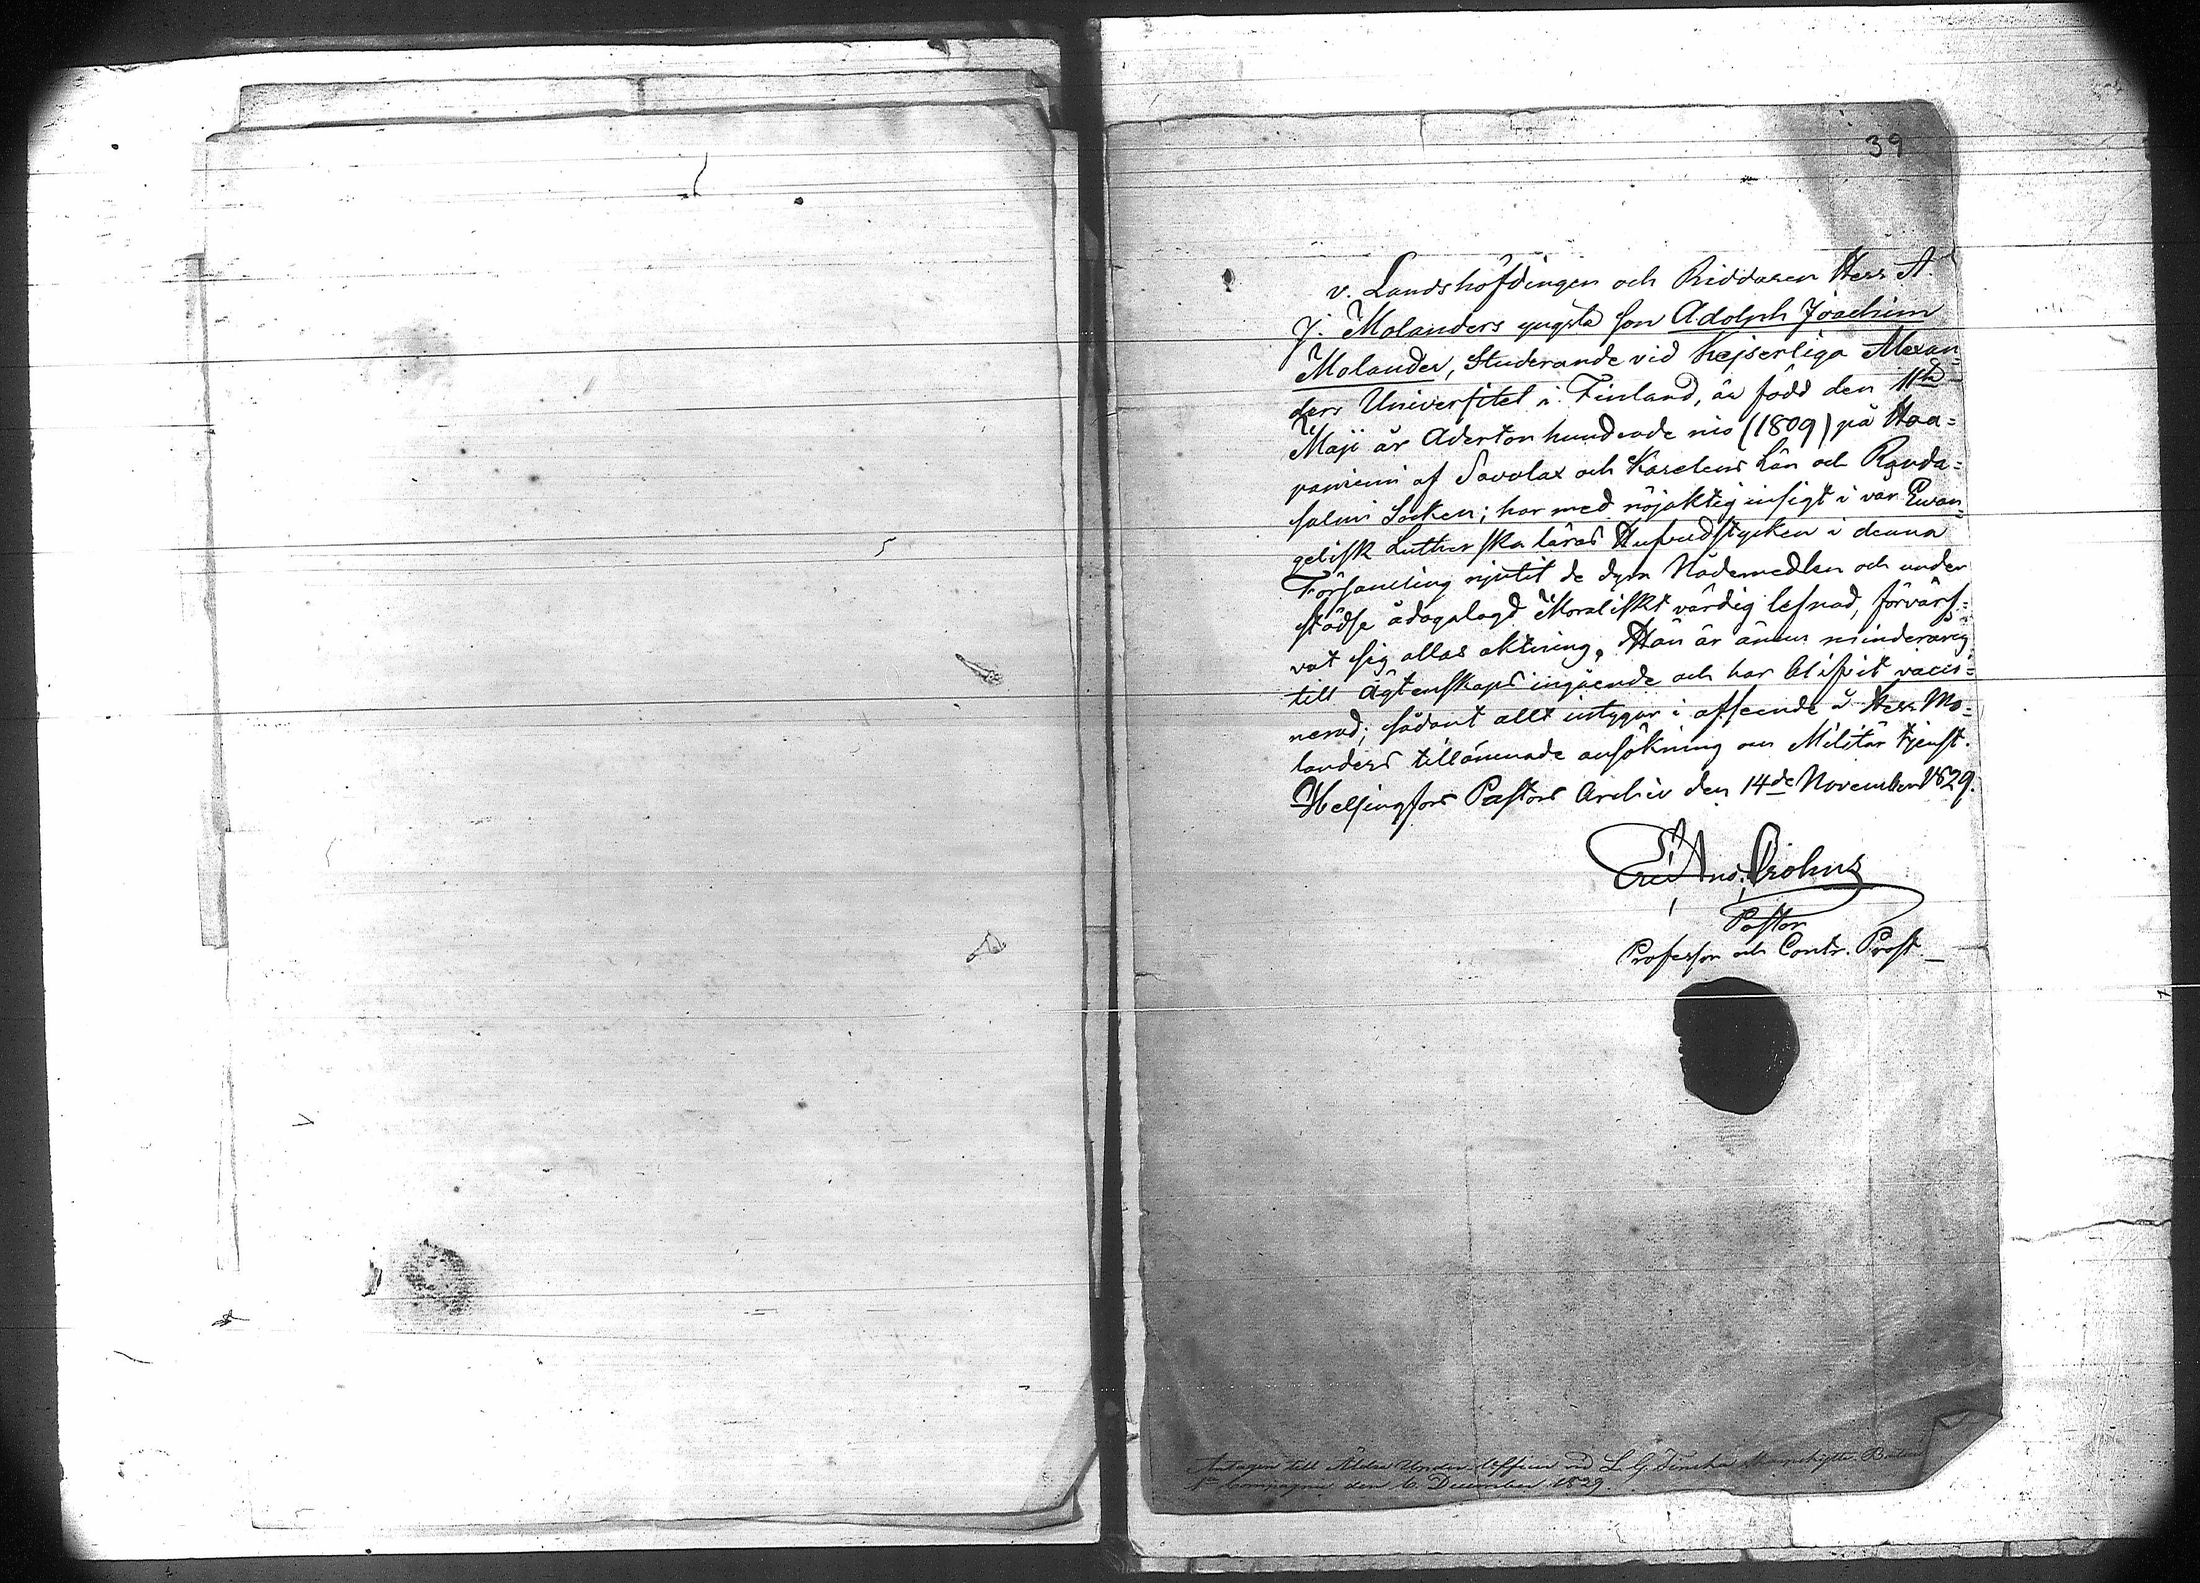 39
v. Landshöfdingen och Riddaren Herr A.
J. Molanders yngsta son Adolph Joachim
Molander, Studerande vid Kejserliga Alexan=
ders Universitet i Finland, är född den 11te
Maji år Adertonhundrade nio (1809) på Haa=
paniemi af Savolax och Karelens Län och Randa=
salmi Socken; har med nöjaktig insigt i vår Evan=
gelisk Lutherska läras Hufvudstycken i denna
Församling njutit de dyra Nådemedlen och under
städse ådagalagd Moraliskt värdig lefnad, förvärf=
vat sig allas aktning. Han är ännu minderårig
till Ägtenskaps ingående och har blifvit vacci=
nerad; sådant allt intygar i afseende å Herr Mo=
landers tillämnade ansökning om Militär tjenst.
Helsingfors Pastors Archiv den 14de November 1829.
Crohns
Pastor
Professor och Contr. Prost.
Antagen till Äldre Under Officer vid L. G. Finska Skarpskytte Batail
Compagnie den 6 December 1829.